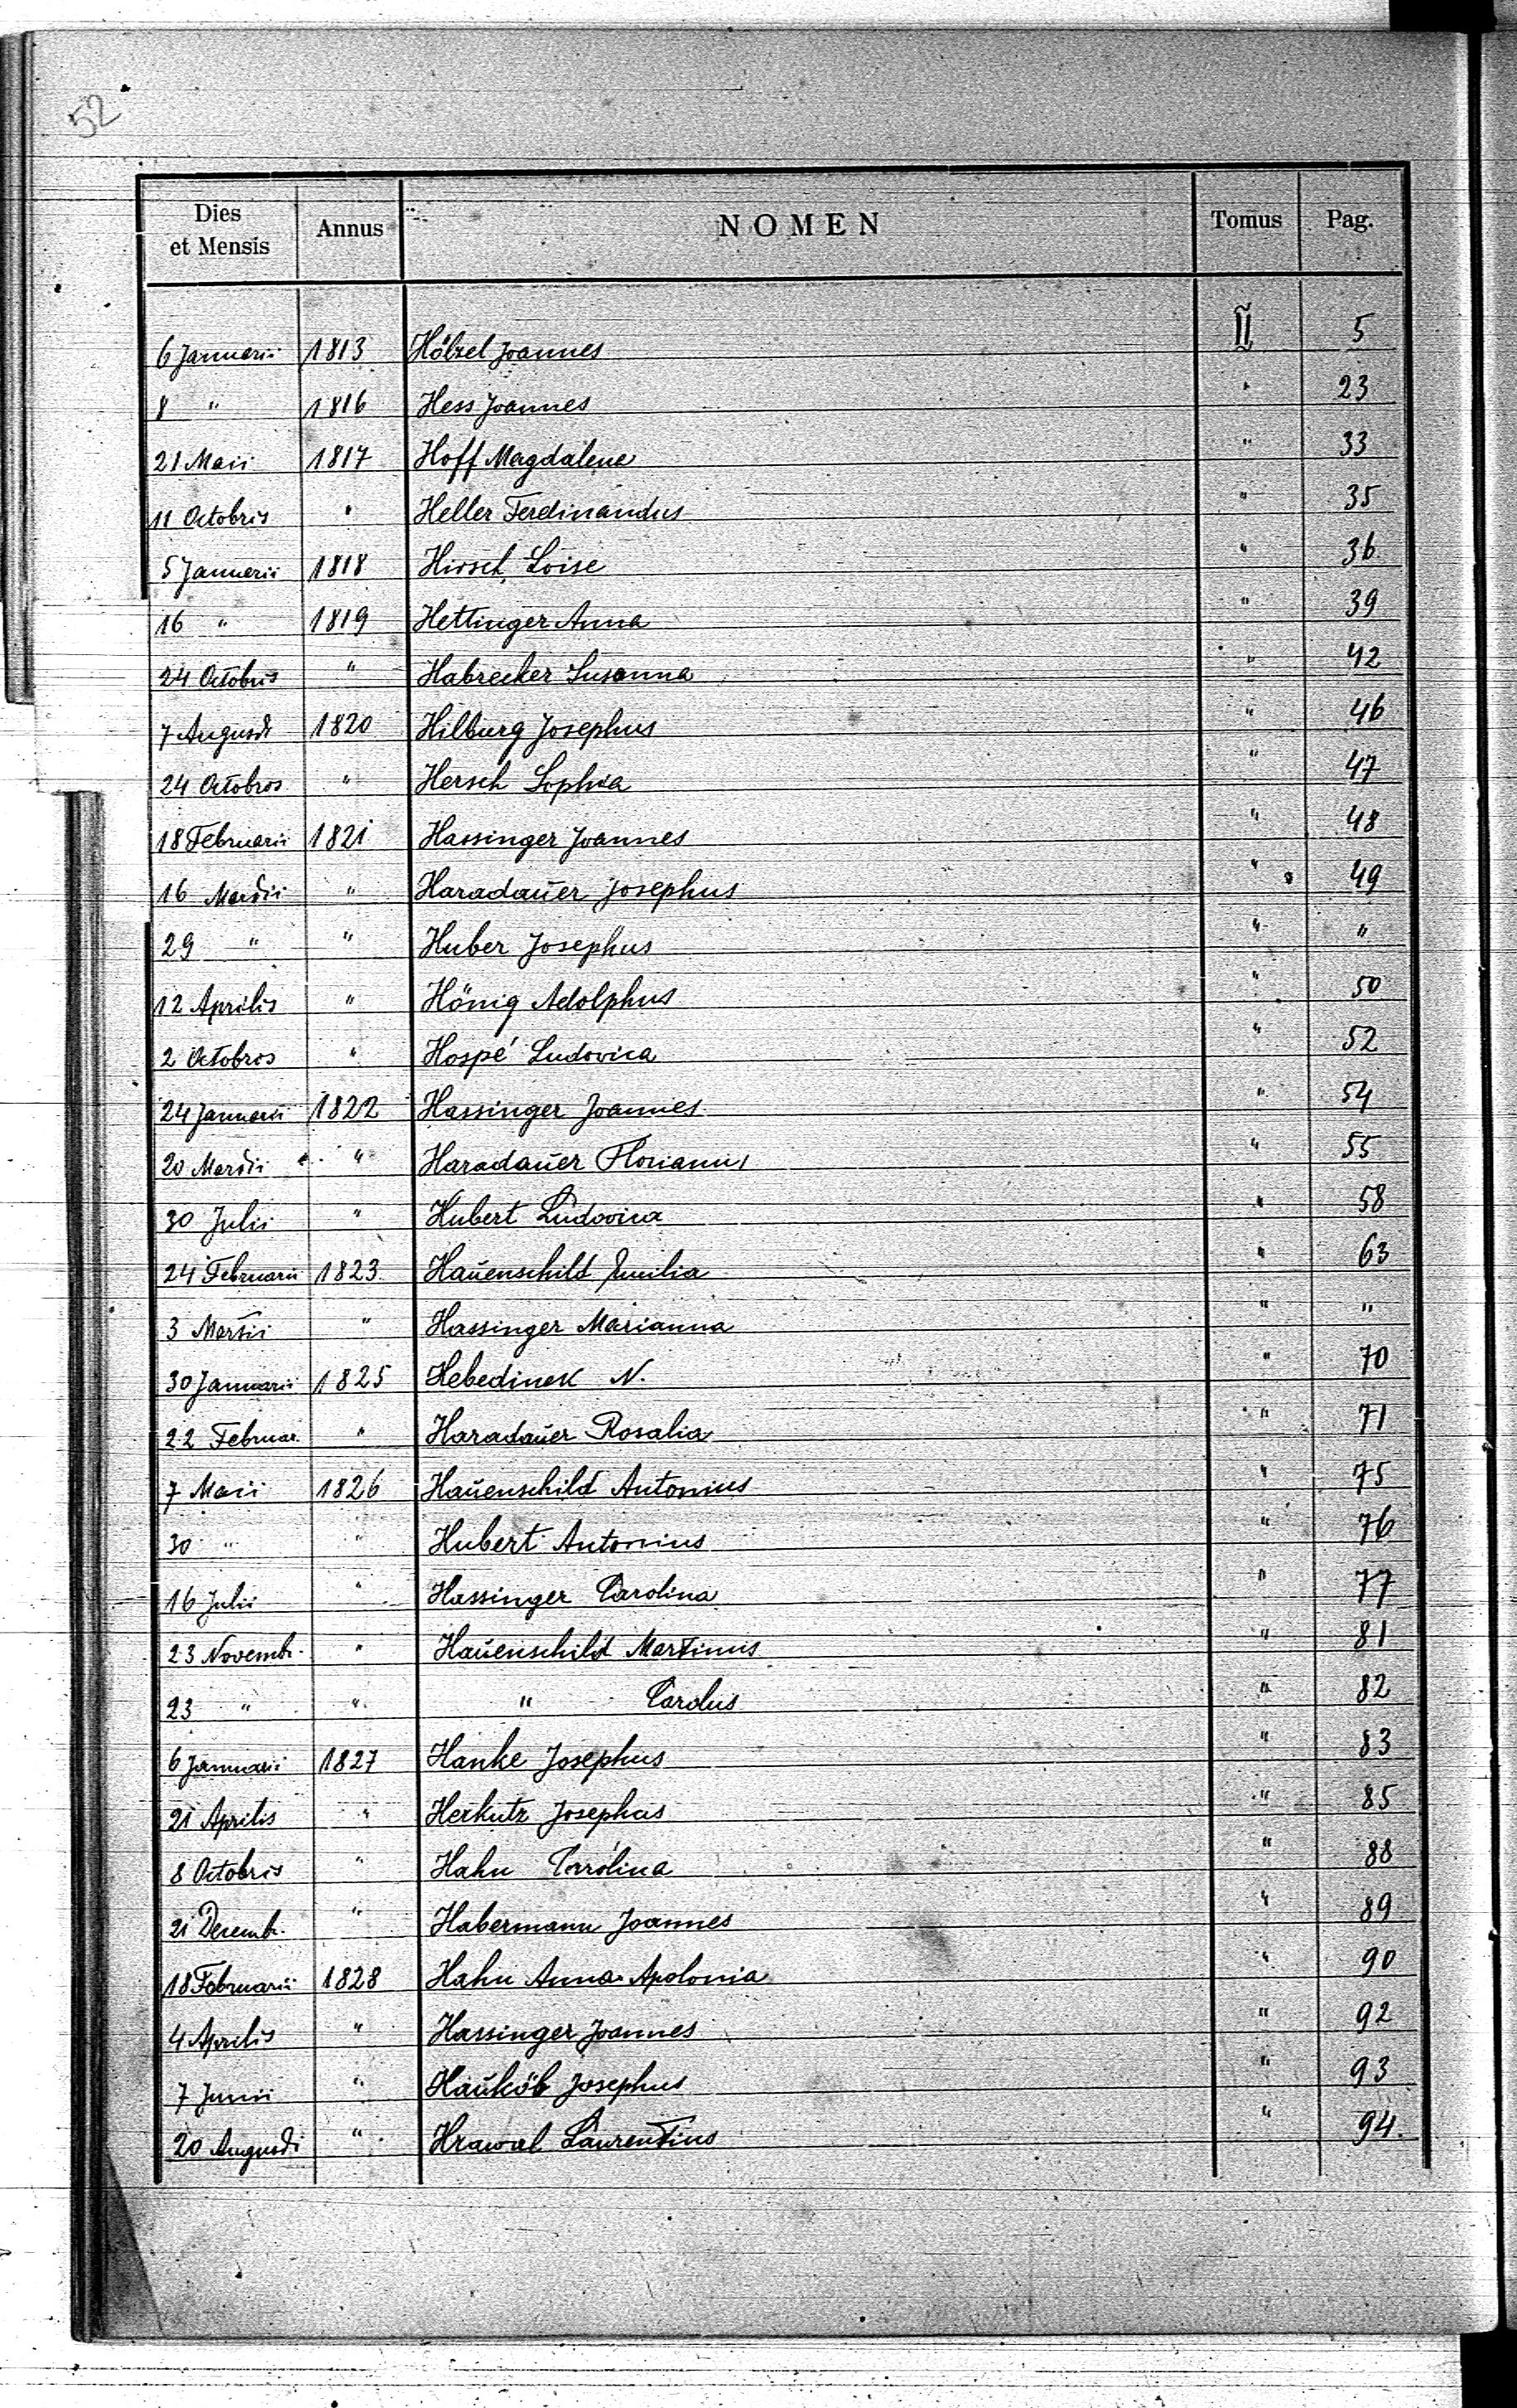 52
Dies et Mensis Annus NOMEN Tomus Pag.
6 Januarii 1813 Hölzel Joannes II 5
8 " 1816 Hess Joannes " 23
21 Maii 1817 Hoff Magdalene " 33
11 Octobris " Heller Ferdinandus " 35
5 Januarii 1818 Hirsch Loise " 36
16 " 1819 Hettinger Anna " 39
24 Octobris " Habrecker Susanna " 42
7 Augusti 1820 Hilburg Josephus " 46
24 Octobros " Hersch Sophia " 47
18 Februarii 1821 Hassinger Joannes " 48
16 Martii " Haradaŭer Josephus " 49
29 " " Huber Josephus " "
12 Aprilis " Hönig Adolphus " 50
2 Octobros " Hospé Ludovica " 52
24 Januarii 1822 Hassinger Joannes " 54
20 Martii " Haradaŭer Florianus " 55
30 Julii " Hubert Ludovica " 58
24 Februarii 1823 Haŭenschild Emilia " 63
3 Martii " Hassinger Marianna " "
30 Januarii 1825 Hebedinek N. " 70
22 Februar. " Haradaŭer Rosalia " 71
7 Maii 1826 Haŭenschild Antonius " 75
30 " " Hubert Antonius " 76
16 Julii " Hassinger Carolina " 77
23 Novemb. " Haŭenschild Martinus " 81
23 " " " Carolus " 82
6 Januarii 1827 Hanke Josephus " 83
21 Aprilis " Herkutz Josephus " 85
8 Octobris " Hahn Carolina " 88
21 Decemb. " Habermann Joannes " 89
18 Februarii 1828 Hahn Anna Apolonia " 90
4 Aprilis " Hassinger Joannes " 92
7 Junii " Haŭköb Josephus " 93
20 Augusti " Hrawal Laurentius " 94.